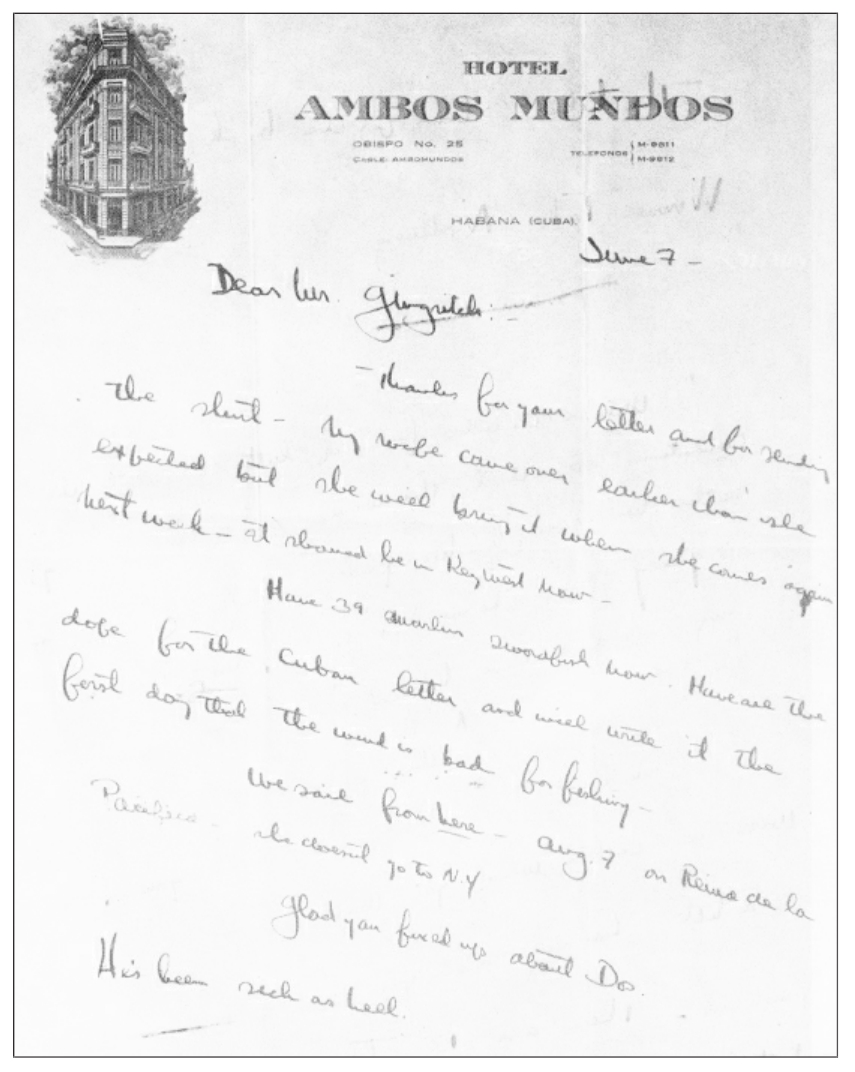 HOTEL
AMBOS MUNDOS
OBISPO No. 25
CABLE: AMBOMUNDOS
TELEFONOS { M-9811
M-9812
HABANA (CUBA),
June 7 -
Dear Mr. Gingrich:
- Thanks for your letter and for sending
the shirt - My wife came over earlier than she
expected but she will bring it when she comes again
next week - It should be in Key West now -
Have 39 marlin swordfish now. Have all the
dope for the Cuban letter and will write it the
first day that the wind is bad for fishing -
We sail from here - Aug. 7 on Reina de la
Pacifico - she doesn't go to N.Y
Glad you fixed up about Dos.
He's been sick as hell.